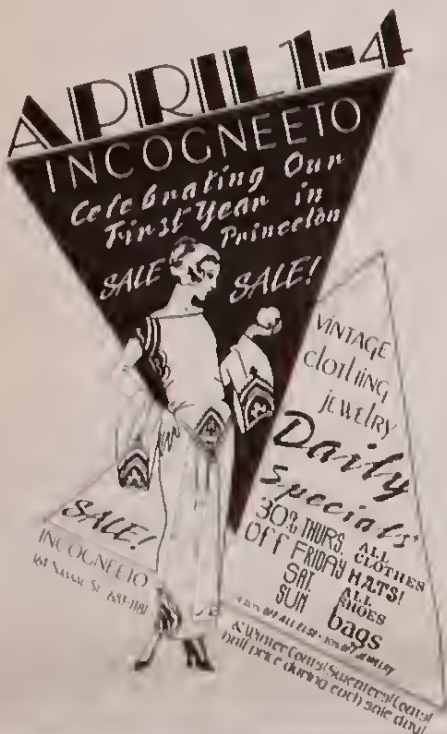 APRIL 1-4
INCOGNEETO
Celebrating Our
First Year in
Princeton
SALE SALE!
VINTAGE
clothing
jewelry
Daily
Specials
30% THURS. ALL CLOTHES
Off FRIDAY HATS!
SAT ALL SHOES
SUN bags
SALE!
INCOGNEETO
Nassau St.
half price during each sale day!